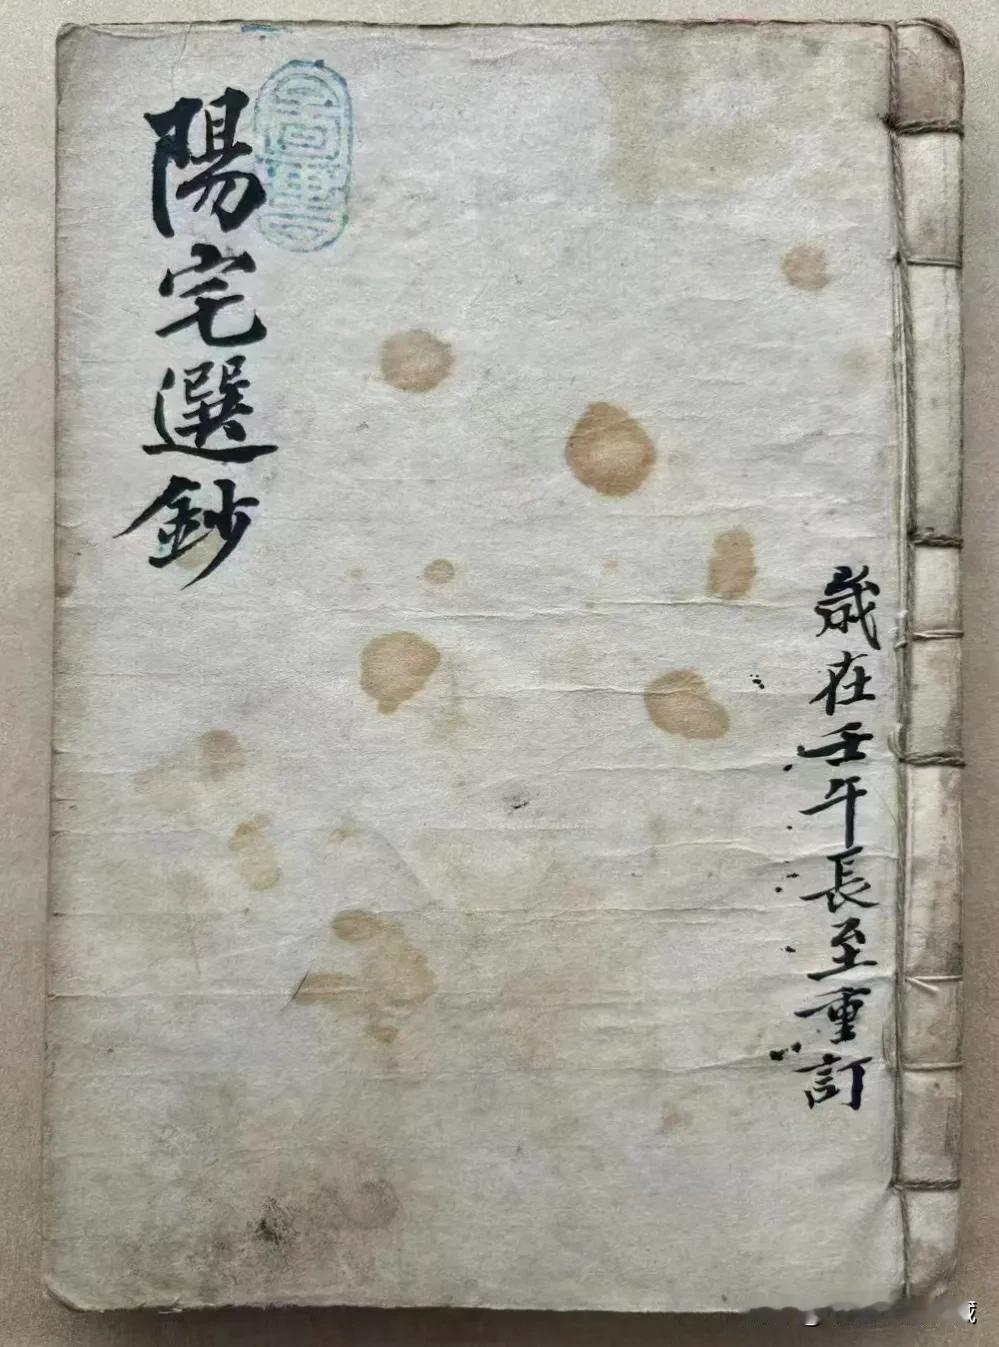 歲在壬午長至重訂
陽宅選鈔